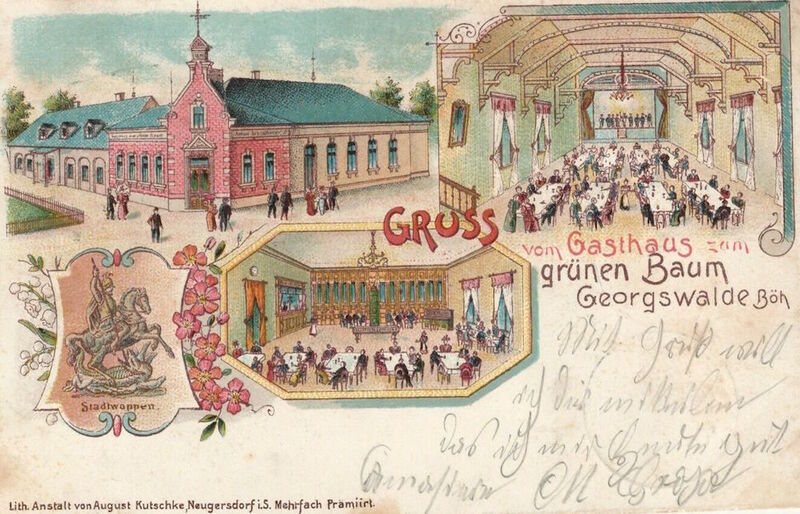 GRUSS
vom Gasthaus zum
grünen Baum
Georgswalde Böh
Stadtwappen.
Mit Gruß will
ich dir
das ich mir gut
Lith. Anstalt von August Kutschke, Neugersdorf i.S. Mehrfach Prämiirt.